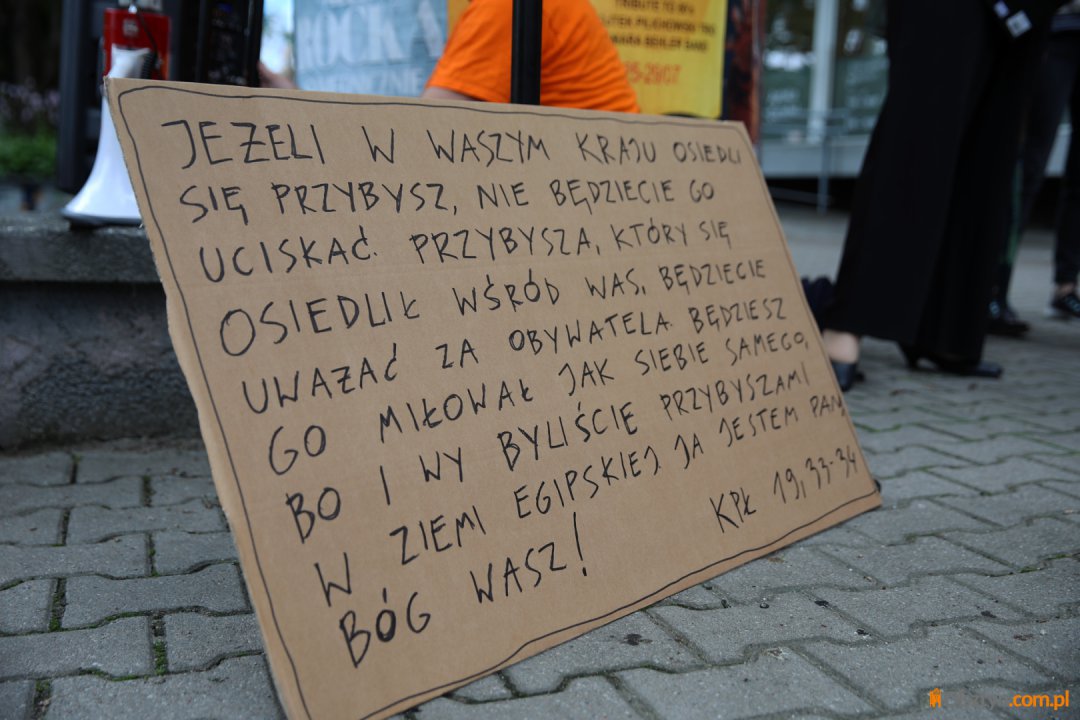 TRIBUTE TO
JEŻELI W WASZYM KRAJU OSIEDLI
SIĘ PRZYBYSZ, NIE BĘDZIECIE GO
UCISKAĆ. PRZYBYSZA, KTÓRY SIĘ
OSIEDLIŁ WŚRÓD WAS, BĘDZIECIE
UWAŻAĆ ZA OBYWATELA. BĘDZIESZ
GO MIŁOWAŁ JAK SIEBIE SAMEGO,
BO I WY BYLIŚCIE PRZYBYSZAMI
W ZIEMI EGIPSKIEJ. JA JESTEM PAN,
BÓG WASZ!
KPŁ 19, 33-34
.com.pl